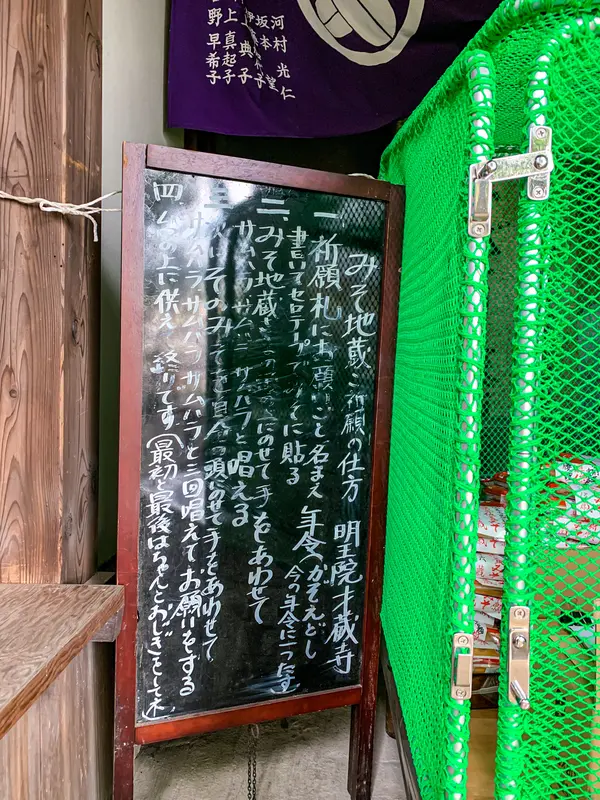 河村 光仁
坂本 望
上 真起子
野 早希子
みそ地蔵ご祈願の仕方 明王院才蔵寺
一 祈願札にお願いごと名まえ 年令かぞえどし
今の年令に一つたす
書いてセロテープで に貼る
二、みそ地蔵 にのせて手をあわせて
サムハラサムハラサムハラと唱える
三 そのみそを自分の頭にのせて手をあわせて
サムハラサムハラサムハラと三回唱えてお願いをする
四 の上に供えて終りです。(最初と最後はちゃんとおじぎをして